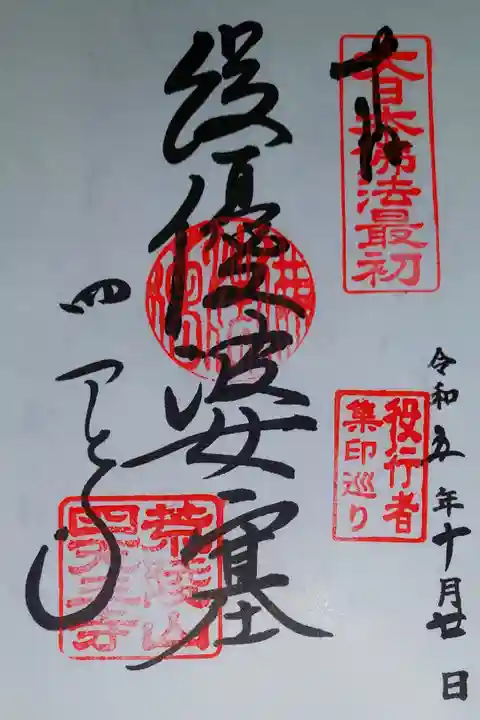 奉拝
大日本佛法最初
令和五年十月廿日
役行者
集印巡り
役優婆塞
四天王寺
荒陵山
四天王寺